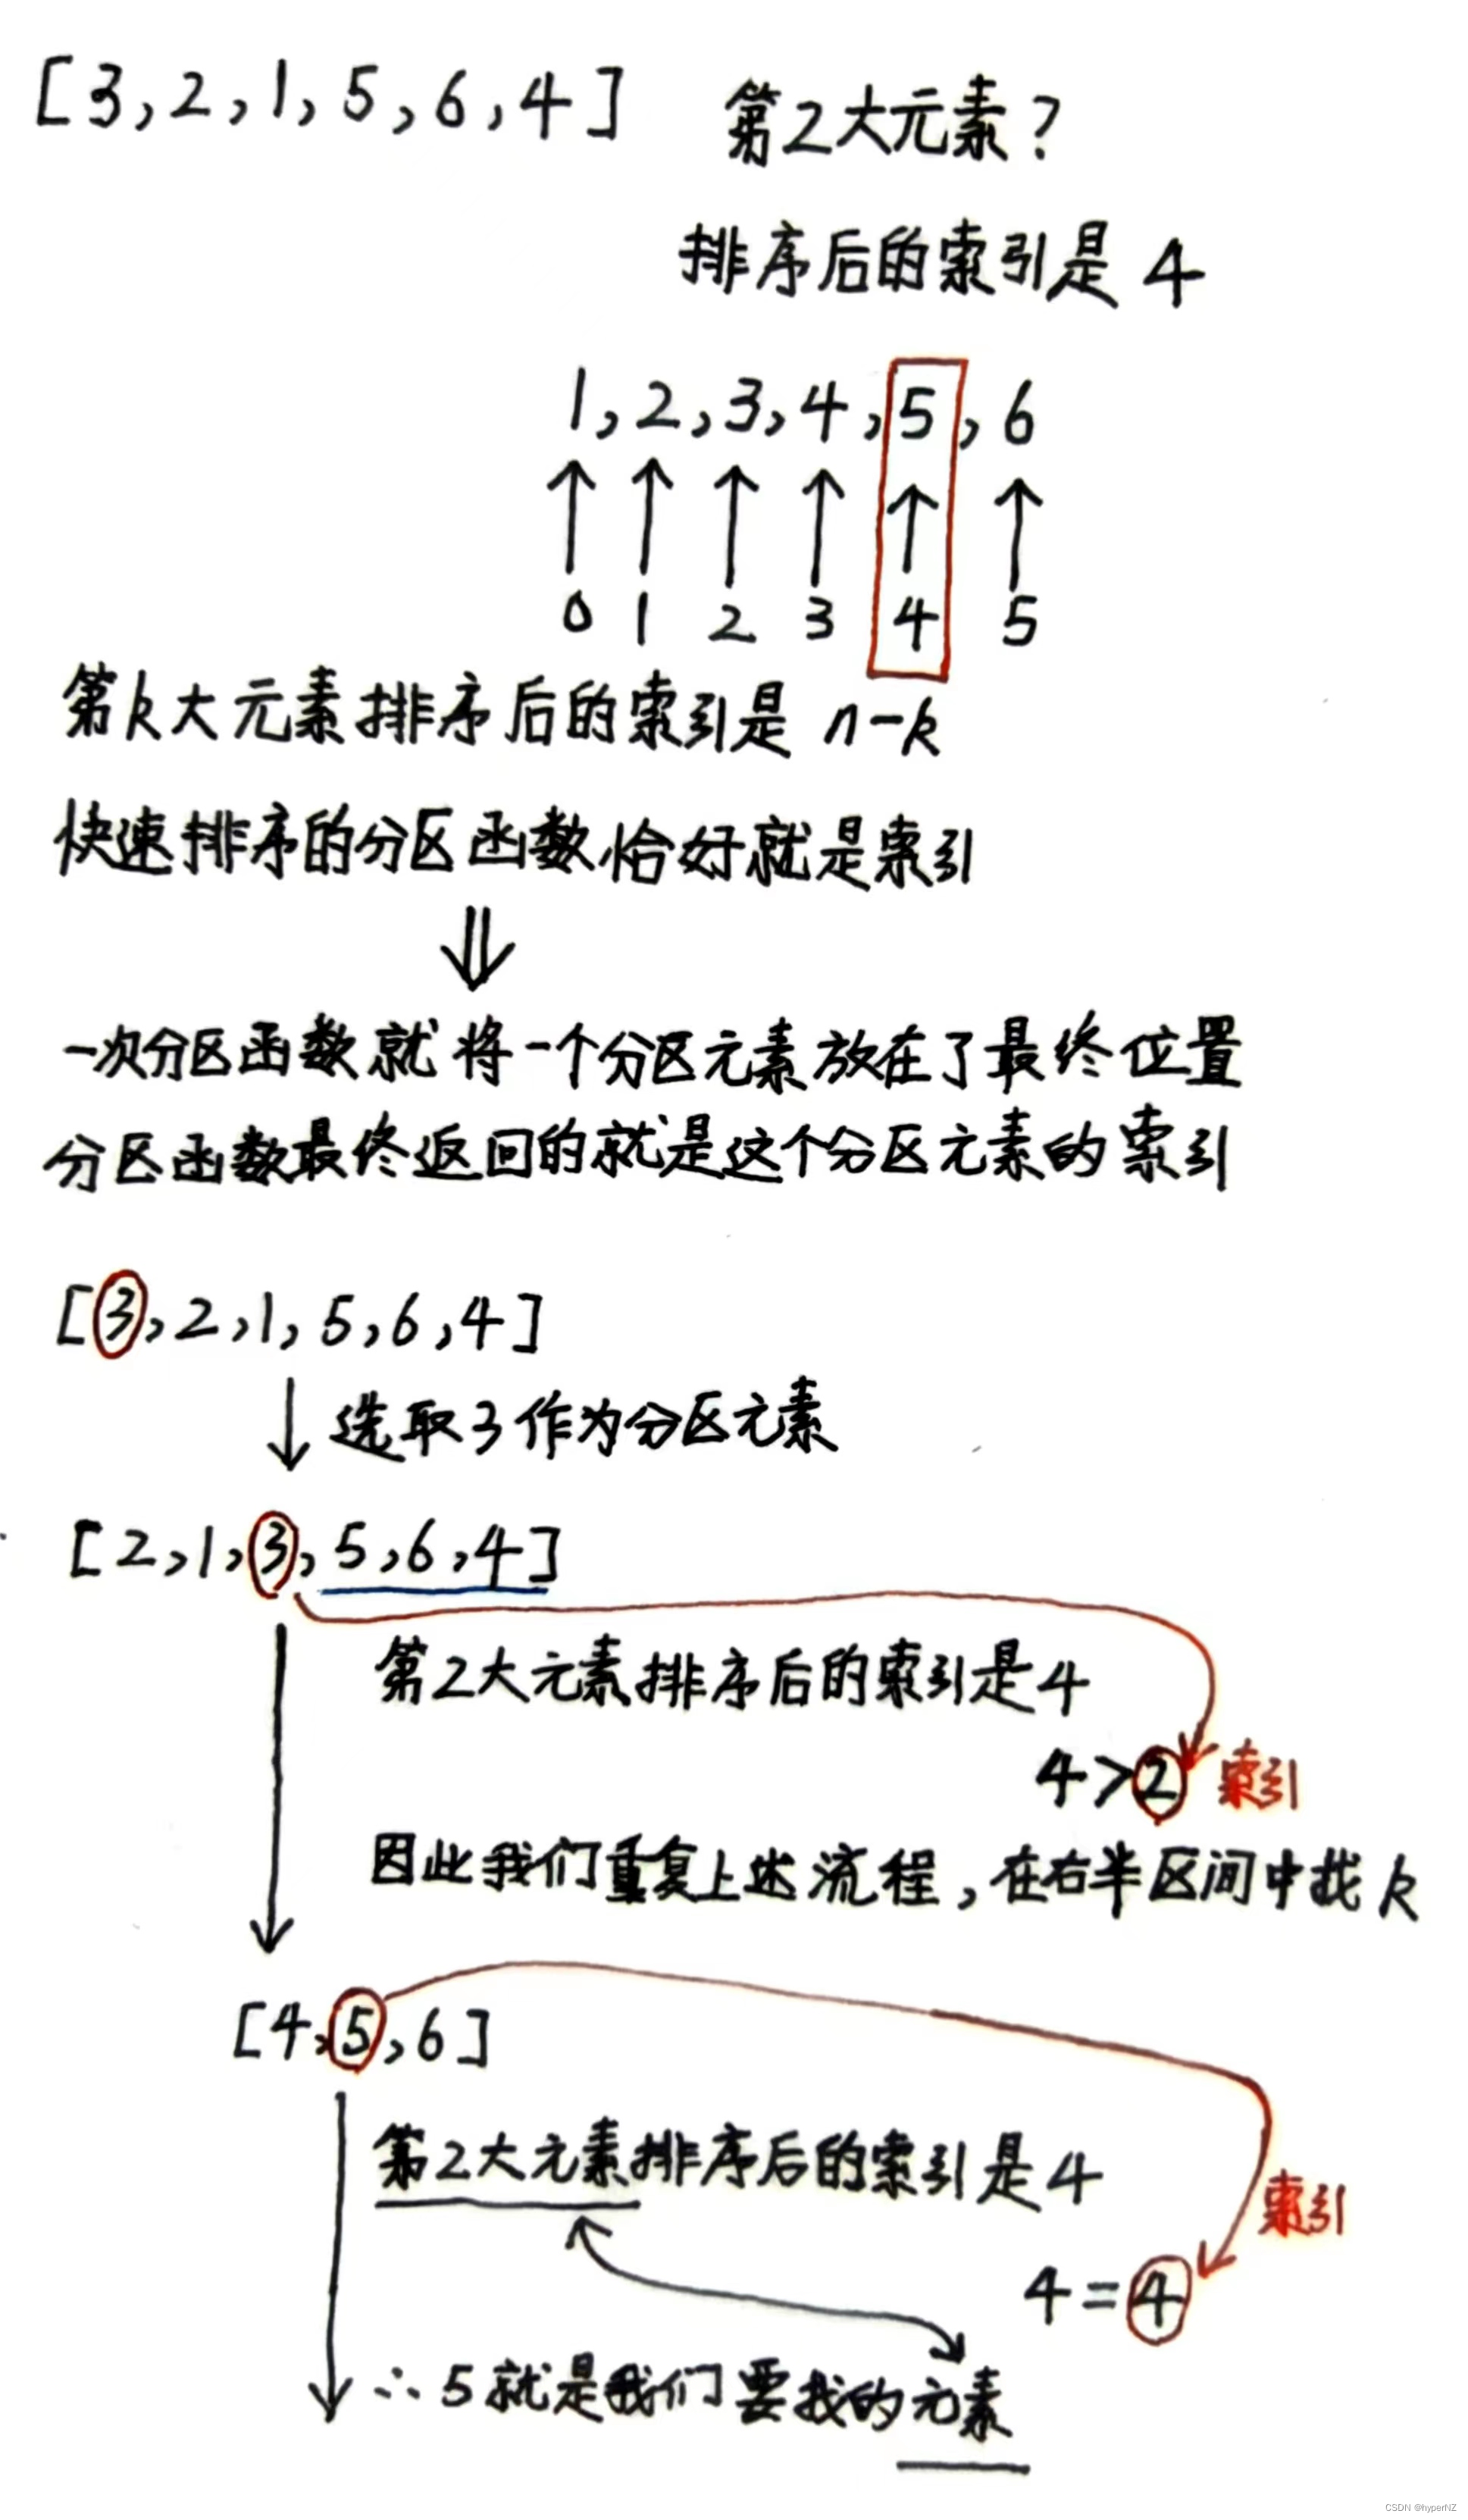 [3,2,1,5,6,4] 第2大元素?
排序后的索引是 4
1,2,3,4,5,6
0 1 2 3 4 5
第k大元素排序后的索引是 n-k
快速排序的分区函数恰好就是索引
一次分区函数就将一个分区元素放在了最终位置
分区函数最终返回的就是这个分区元素的索引
[3,2,1,5,6,4]
选取3作为分区元素
[2,1,3,5,6,4]
第2大元素排序后的索引是4
4>2 索引
因此我们重复上述流程,在右半区间中找k
[4,5,6]
第2大元素排序后的索引是4
索引
4=4
∴5就是我们要找的元素
CSDN @hyperNZ